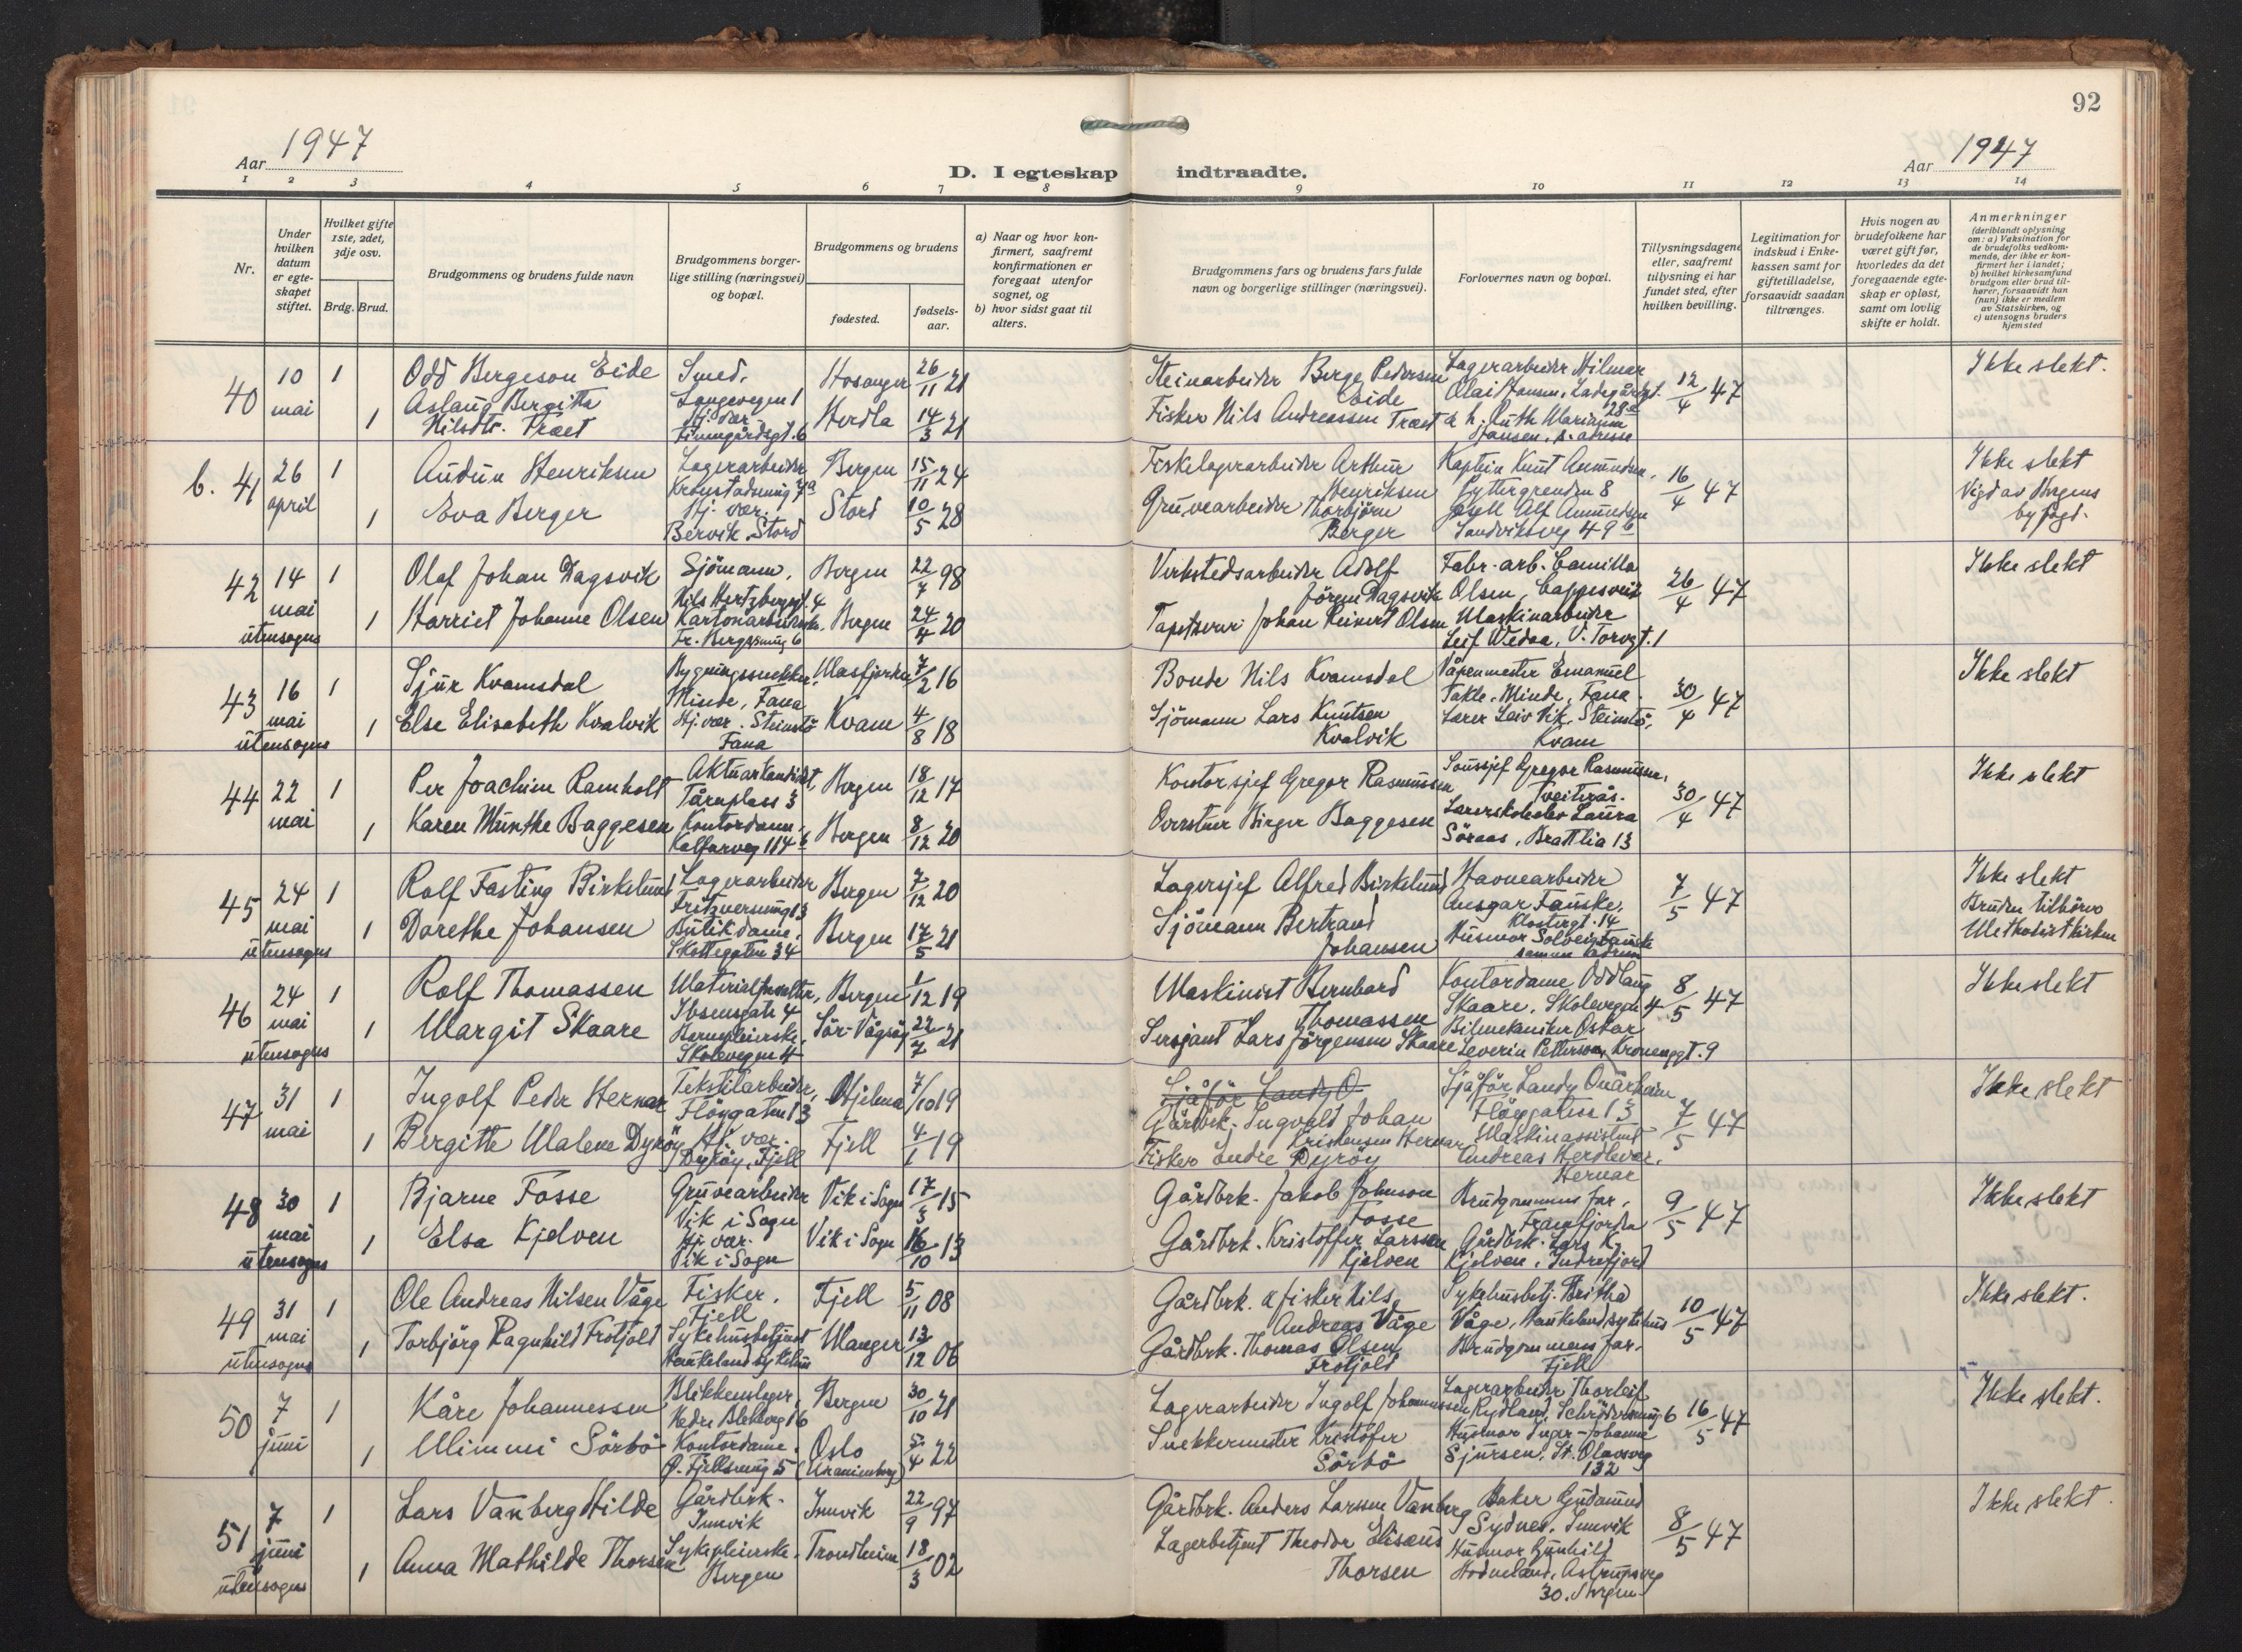 92
Aar 1947
D. I egteskap indtraadte.
Aar 1947
1 2 3 4 5 6 7 8 9 10 11 12 13 14
Nr.
Under hvilken datum er egteskapet stiftet.
Hvilket gifte 1ste, 2det, 3dje osv.
Brdg. Brud.
Brudgommens og brudens fulde navn
Brudgommens borgerlige stilling (næringsvei) og bopæl.
Brudgommens og brudens
fødested.
fødselsaar.
a) Naar og hvor konfirmert, saafremt konfirmationen er foregaat utenfor sognet, og
b) hvor sidst gaat til alters.
Brudgommens fars og brudens fars fulde navn og borgerlige stillinger (næringsvei).
Forlovernes navn og bopæl.
Tillysningsdagene eller, saafremt tillysning ei har fundet sted, efter hvilken bevilling.
Legitimation for indskud i Enkekassen samt for giftetilladelse, forsaavidt saadan tiltrænges.
Hvis nogen av brudefolkene har været gift før, hvorledes da det foregaaende egteskap er opløst, samt om lovlig skifte er holdt.
Anmerkninger
(deriblandt oplysning om: a) Vaksination for de brudefolks vedkommende, der ikke er konfirmert her i landet; b) hvilket kirkesamfund brudgom eller brud tilhører, forsaavidt han (hun) ikke er medlem av Statskirken, og c) utensogns bruders hjemsted
40 10 mai 1 Odd Bergeson Eide Smed. Langevegen 1 Hosanger 26/11 21 Steinarbeider Berge Pedersen Eide Lagerarbeider Hilmar Olai Jansen, Ladegårdsgt. 28a 12/4 47 Ikke slekt.
1 Aslaug Bergitta Nilsdtr. Træet Hj. vær. Finnegårdsgt. 6 Herdla 14/3 21 Fisker Nils Andreassen Træet & h. Ruth Marianne Jansen, s. adresse
b. 41 26 april 1 Audun Henriksen Lagerarbeider Bergen 15/11 24 Fiskelagerarbeider Arthur Henriksen Kaptein Knut Amundsen, Lyttergrenden 8 16/4 47 Ikke slekt
Vigd av Bergens byfogd.
1 Eva Berger Hj. vær. Bervik, Stord Stord 10/5 28 Gruvearbeider Thorbjörn Berger Alf Amundsen Sandviksveg 49b
42 14 mai utensogns 1 Olaf Johan Dagsvik Sjömann, Nils Hertzbergsgt. 4 Bergen 22/7 98 Verkstedsarbeider Adolf Jörgen Dagsvik Fabr.-arb. Camilla Olsen, Cappesveit 26/4 47 Ikke slekt
1 Harriet Johanne Olsen Kartonarbeiderske, Bergen 24/4 20 Tapetserer Johan Reinert Olsen Maskinarbeider Leif Wedaa, V. Torvgt. 1
43 16 mai utensogns 1 Sjur Kvamsdal Bygningssnekker, Minde, Fana Masfjorden 7/2 16 Bonde Nils Kvamsdal Våpenmester Emanuel Takle, Minde, Fana. 30/4 47 Ikke slekt
1 Else Elisabeth Kvalvik Hj. vær. Steinstö Fana Kvam 4/8 18 Sjömann Lars Knutsen Kvalvik Lærer Leiv Vik, Steinstö, Kvam
44 22 mai 1 Per Joachim Ramholt Aktuarkandidat, Tårnplass 3 Bergen 18/12 17 Kontorsjef Gregor Rasmussen Gregor Rasmussen, Tveiterås. 30/4 47 Ikke slekt
1 Karen Munthe Baggesen Kontordame. Kalfarveg 114b Bergen 8/12 20 Birger Baggesen Laura Söraas, Brattlia 13
45 24 mai utensogns 1 Rolf Fasting Birkelund Lagerarbeider Bergen 7/12 20 Lagersjef Alfred Birkelund Havnearbeider Ansgar Fauske, Klostergt. 14 7/5 47 Ikke slekt
Bruden tilhörer Methodistkirken
1 Dorethe Johansen Butikdame, Skottegaten 34 Bergen 17/5 21 Sjömann Bertrand Johansen Husmor Solveig Fauske samme adresse
46 24 mai utensogns 1 Rolf Thomassen Materialforvalter, Ibsensgate 4 Bergen 1/12 19 Maskinist Bernhard Thomassen Kontordame Oddlaug Skaare, Skolevegen 4 8/5 47 Ikke slekt
1 Margit Skaare Barnepleierske, Skolevegen 4 Sör-Vågsöy 22/7 21 Sersjant Lars Jörgensen Skaare Bilmekaniker Oskar Severin Pettersen, Kronengt. 9
47 31 mai 1 Ingolf Peder Hernar Tekstilarbeider, Flöygaten 13 Hjelme 7/10 19 Sjåför Landy O
Gårdbrk. Ingvald Johan Kristensen Hernar Sjåför Landy Onarheim Flöygaten 13 7/5 47 Ikke slekt
1 Bergitte Malene Dyröy Hj. vær. Dyröy, Fjell Fjell 4/1 19 Fisker Endre Dyröy Maskinassistent Andreas Herdlevær, Hernar
48 30 mai utensogns 1 Bjarne Fosse Gruvearbeider Vik i Sogn Vik i Sogn 17/3 15 Gårdbrk. Jakob Johnson Fosse Brudgommens far, Framfjorden 9/5 47 Ikke slekt
1 Elsa Kjelven Hj. vær. Vik i Sogn Vik i Sogn 16/10 13 Gårdbrk. Kristoffer Larssen Kjelven Gårdbrk. Lars K. Kjelven, Indrefjord
49 31 mai utensogns 1 Ole Andreas Nilsen Våge Fisker, Fjell Fjell 5/11 08 Gårdbrk. & fisker Nils Andreas Våge Sykehusbetj. Britha Våge, Haukeland sykehus 10/5 47 Ikke slekt.
1 Torbjörg Ragnhild Frotjold Sykehusbetjent Haukeland sykehus Manger 13/12 06 Gårdbrk. Thomas Olsen Frotjold Brudgommens far. Fjell
50 7 juni 1 Kåre Johannessen Blikkenslager, Nedre Blekeveg 16 Bergen 30/10 21 Lagerarbeider Ingolf Johannessen Lagerarbeider Thorleif Rydland, 6 16/5 47 Ikke slekt.
1 Mimmi Sörbö Kontordame. Ø. Fjellsmug 5 Oslo (Uranienborg) 5/4 22 Snekkermester Kristofer Sörbö Husmor Inger-Johanne Sjursen, St. Olavsveg 132
51 7 juni utensogns 1 Lars Vanberg Hilde Gårdbrk. Innvik Innvik 22/9 97 Gårdbrk. Anders Larssen Vanberg Baker Gudmund Sydnes, Innvik 8/5 47 Ikke slekt.
1 Anna Mathilde Thorsen Sykepleierske. Bergen Trondheim 18/3 02 Lagerbetjent Theodor Elisæus Thorsen Husmor Gunhild Hodneland, Astrupsveg 30. Bergen